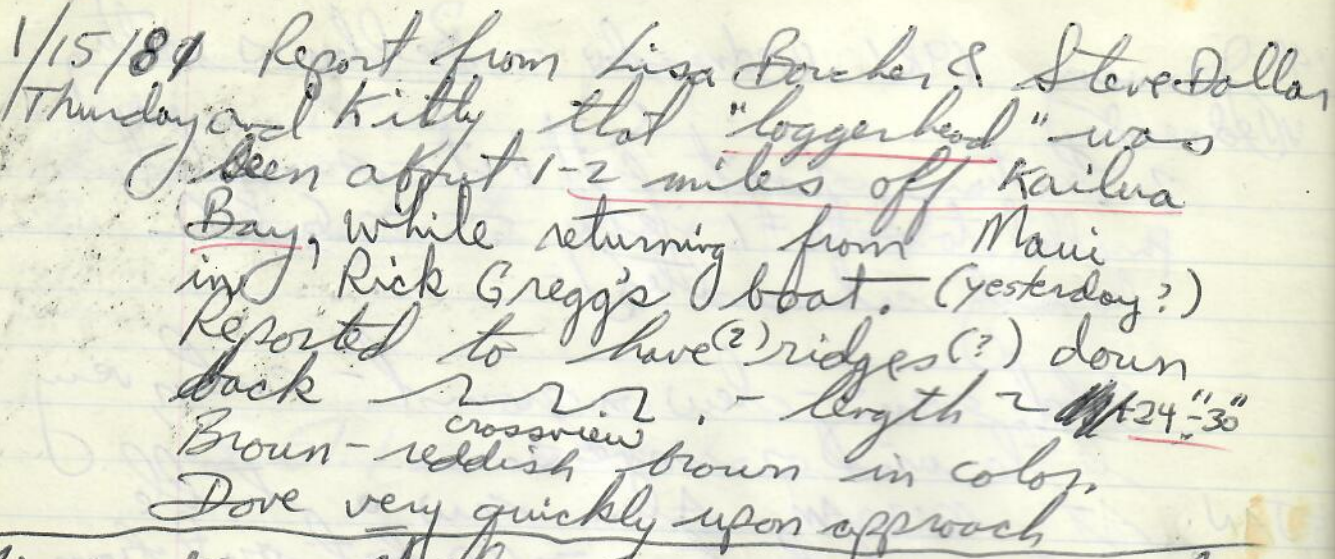 1/15/81 Report from Lisa Boucher & Steve Dollar
Thursday and Kitty that "loggerhead" was
seen about 1-2 miles off Kailua
Bay, while returning from Maui
in Rick Gregg's boat. (yesterday?)
Reported to have (2) ridges (?) down
back . - length ~ 24"-30"
crossview
Brown-reddish brown in color.
Dove very quickly upon approach